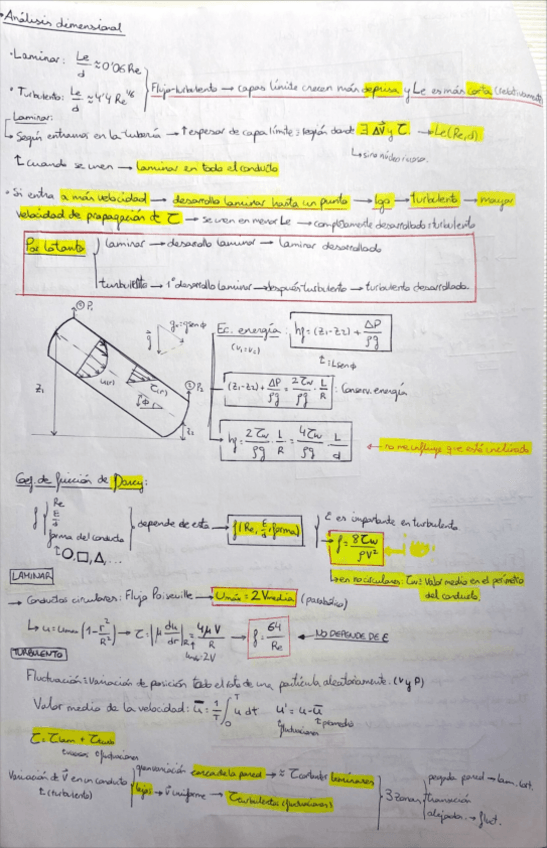 • Análisis dimensional
• Laminar: Le/d ≈ 0'06 Re
• Turbulento: Le/d ≈ 4'4 Re^1/6
Flujo turbulento → capas límite crecen más deprisa y Le es más corta (relativamente)
Laminar:
↳ Según entramos en la tubería → ↑ espesor de capa límite: región donde ∃ ΔV y τ → Le(Re,d)
↳ sino núcleo
cuando se unen → laminar en todo el conducto
• Si entra a más velocidad → desarrollo laminar hasta un punto → lgo → turbulento → mayor
velocidad de propagación de τ → se unen en menor Le → completamente desarrollado: turbulento
Por lo tanto
laminar → desarrollo laminar → laminar desarrollado
turbulento → 1º desarrollo laminar → después turbulento → turbulento desarrollado.
① P₁
g
gx = g sen ϕ
Z₁
u(r)
τ(r)
ϕ
② P₂
Z₂
Ec. energía: hf = (Z₁-Z₂) + ΔP/ρg
(V₁=V₂)
L sen ϕ
(Z₁-Z₂) + ΔP/ρg = 2τw/ρg · L/R : Conserv. energía
hf = 2τw/ρg · L/R = 4τw/ρg · L/d
← no me influye que esté inclinado
Coef. de fricción de Darcy:
f
Re
ε/d
forma del conducto
○, □, △, ...
depende de esta → f(Re, ε/d, forma)
ε es importante en turbulento
→ f = 8τw/ρV²
↳ en no circulares: τw = valor medio en el perímetro
del conducto.
LAMINAR
→ Conductos circulares: Flujo Poiseuille → Umáx = 2 Vmedia (parabólico)
↳ u = umax (1 - r²/R²) → τ = |μ du/dr|R = 4μV/R → f = 64/Re ← NO DEPENDE DE ε
umáx = 2V
TURBULENTO
Fluctuación = variación de posición de una partícula aleatoriamente. (V y P)
Valor medio de la velocidad: ū = 1/T ∫₀ᵀ u dt u' = u - ū
fluctuaciones
promedio
τ = τlam + τturb
fluctuaciones
Variación de V en un conducto
(turbulento)
gran variación cerca de la pared → ≈ τ cortador laminares
lejos → V uniforme → τ turbulentos (fluctuaciones)
3 zonas
pegada pared → lam. cort.
transición
alejada → fluct.